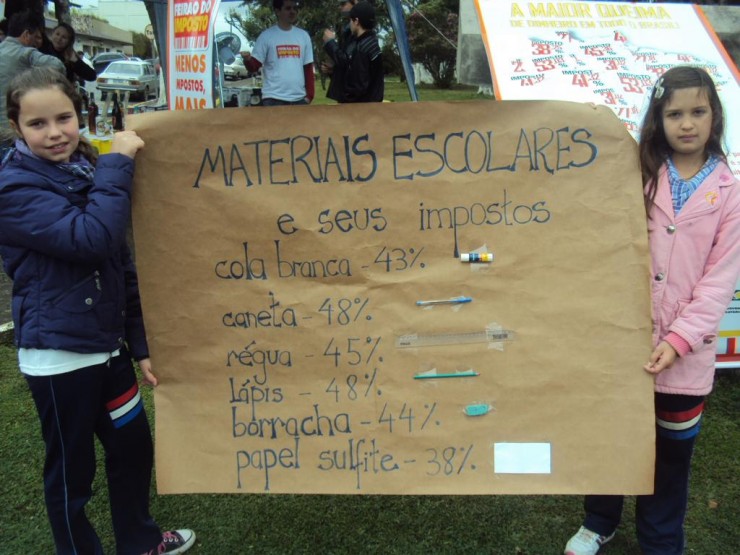 FEIRÃO DO
IMPOSTO
MENOS
IMPOSTOS,
MAIS
FEIRÃO DO
IMPOSTO
A MAIOR QUEIMA
DE DINHEIRO EM TODO O BRASIL
MATERIAIS ESCOLARES
e seus impostos
cola branca - 43%
caneta - 48%
régua - 45%
lápis - 48%
borracha - 44%
papel sulfite - 38%